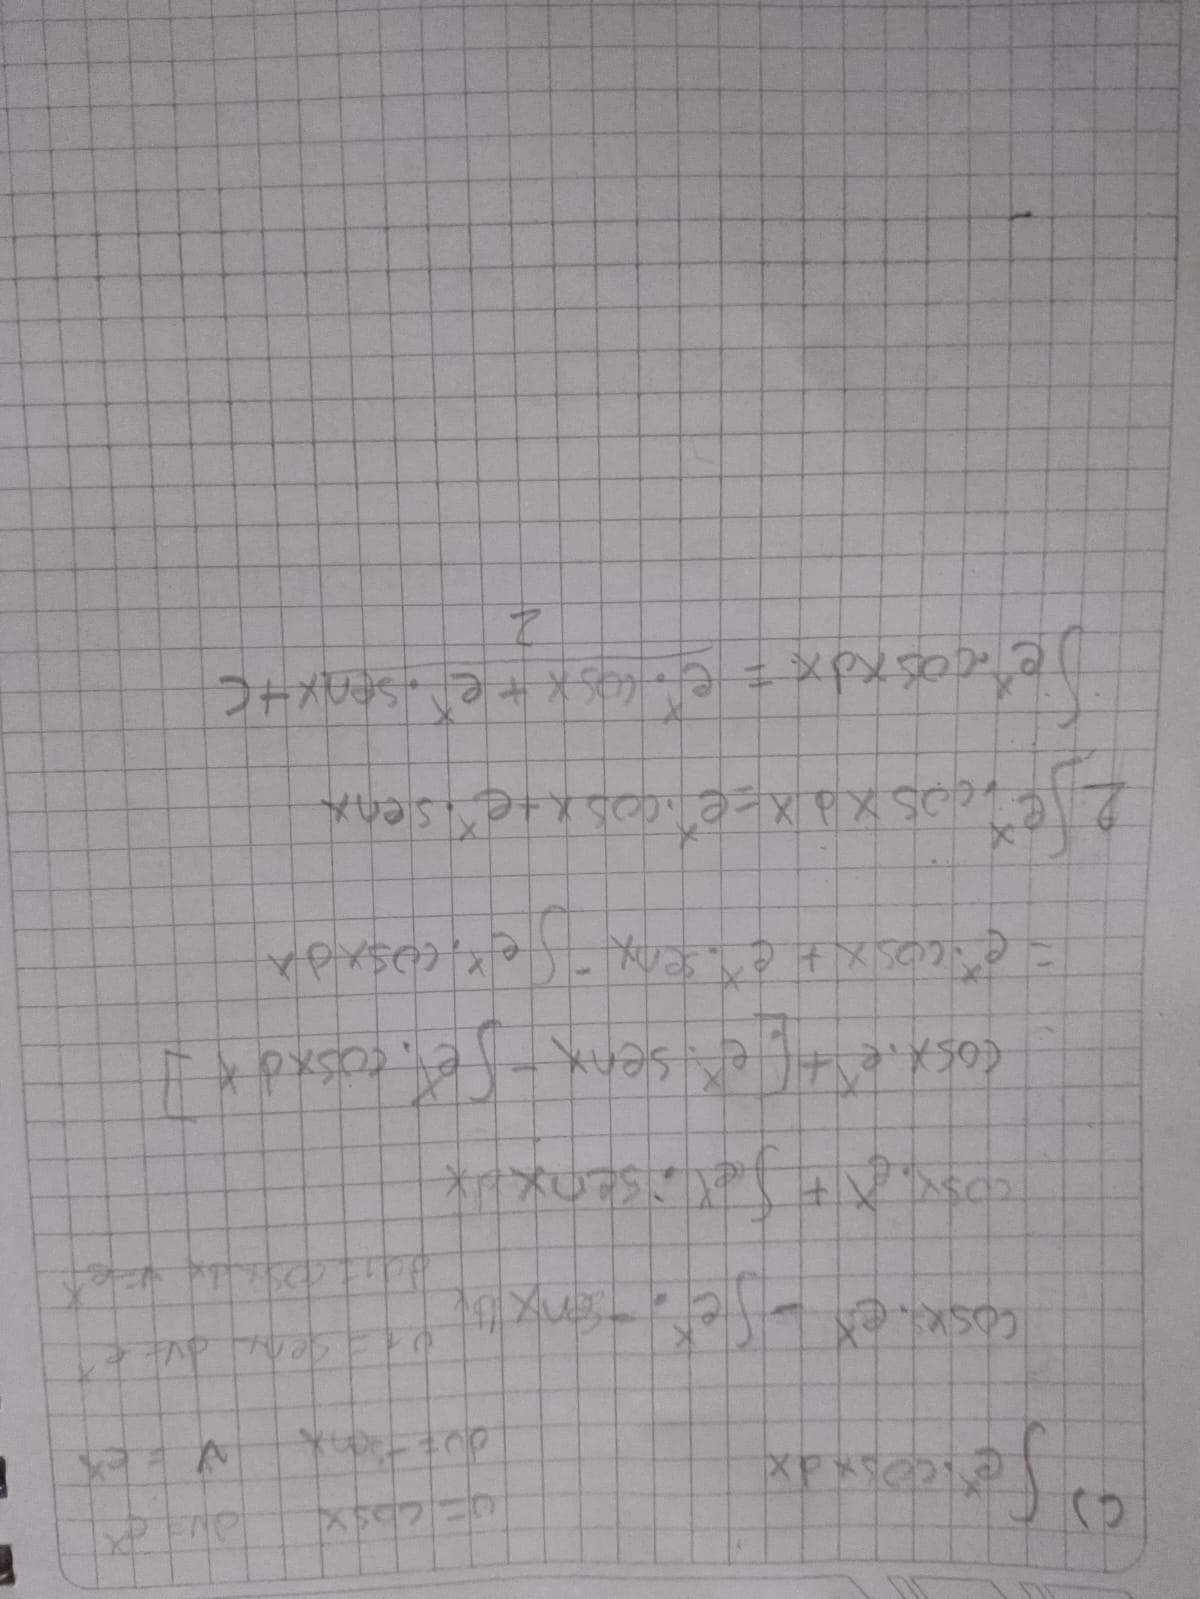 c) ∫e^x.cosxdx u=cosx dv=e^x
du=-senx v=e^x
cosx.e^x - ∫e^x.-senxdx u1=senx dv=e^x
du1=cosxdx v=e^x
cosx.e^x + ∫e^x.senxdx
cosx.e^x + [e^x.senx - ∫e^x.cosxdx]
= e^x.cosx + e^x.senx - ∫e^x.cosxdx
2∫e^x.cosxdx = e^x.cosx + e^x.senx
∫e^x.cosxdx = e^x.cosx + e^x.senx + C
2